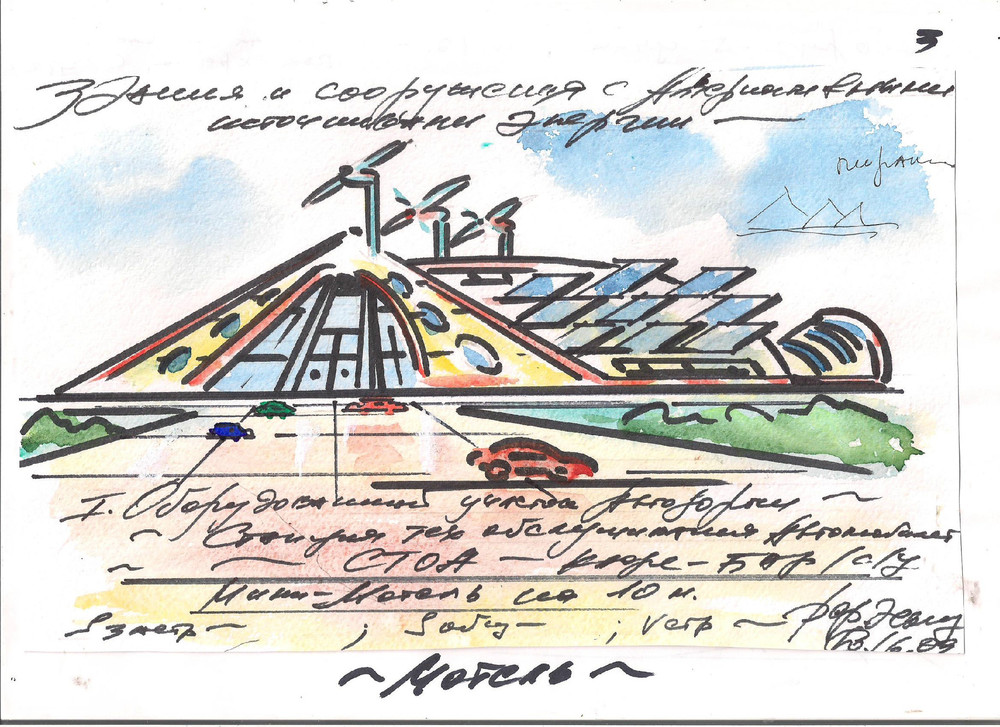 3
Здания и сооружения с Альтернативными
источниками Энергии —
пирам
I. Оборудованный участок Автодороги ~
~ Станция тех обслуживания Автомобилей
~ ~ СТОА — кафе-БАР /с/у
Мини-Мотель на 10 н.
Sзастр — ; Sобщ — ; Vстр ~
~ Мотель ~